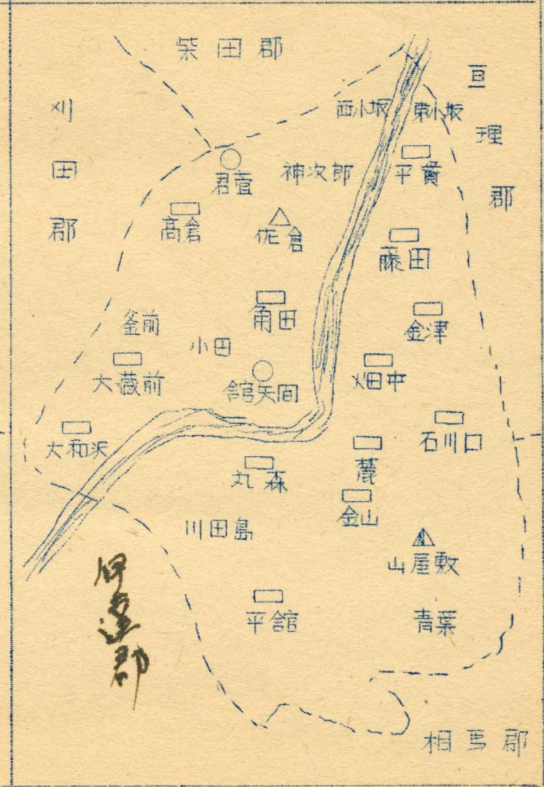 柴田郡
亘理郡
刈田郡
西小坂
東小坂
君萱
神次郎
平貫
高倉
佐倉
藤田
角田
金津
釜前
小田
大蔵前
舘矢間
畑中
大和沢
石川口
丸森
麓
金山
川田島
山屋敷
平舘
青葉
伊達郡
相馬郡